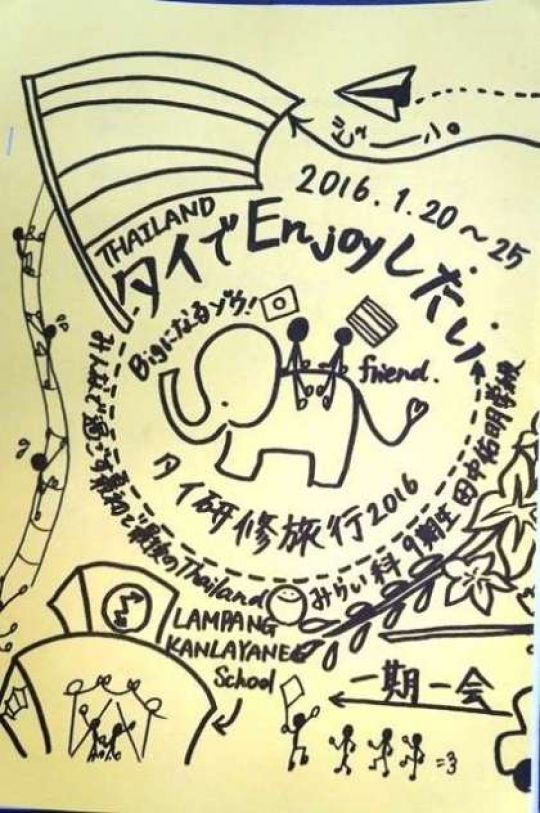 ビューーン。
2016.1.20～25
THAILAND
タイでEnjoyしたい
Bigになるゾウ!
friend.
みんなで過ごす最初で最後のThailand
タイ研修旅行2016
みらい科9期生田中佑明学級
LAMPANG
KANLAYANEE
School
一期一会